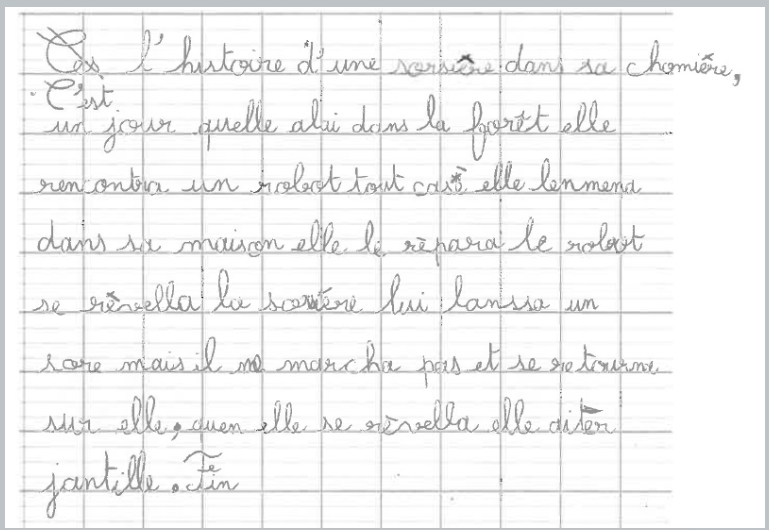 Cas l'histoire d'une sorsière dans sa chomière,
C'est
un jour quelle alai dans la forêt elle
rencontra un robot tout casé elle lenmena
dans sa maison elle le répara le robot
se rèvella la sorsière lui lanssa un
sore mais il ne marcha pas et se retourna
sur elle, quen elle se rèvella elle aiter
jantille. Fin